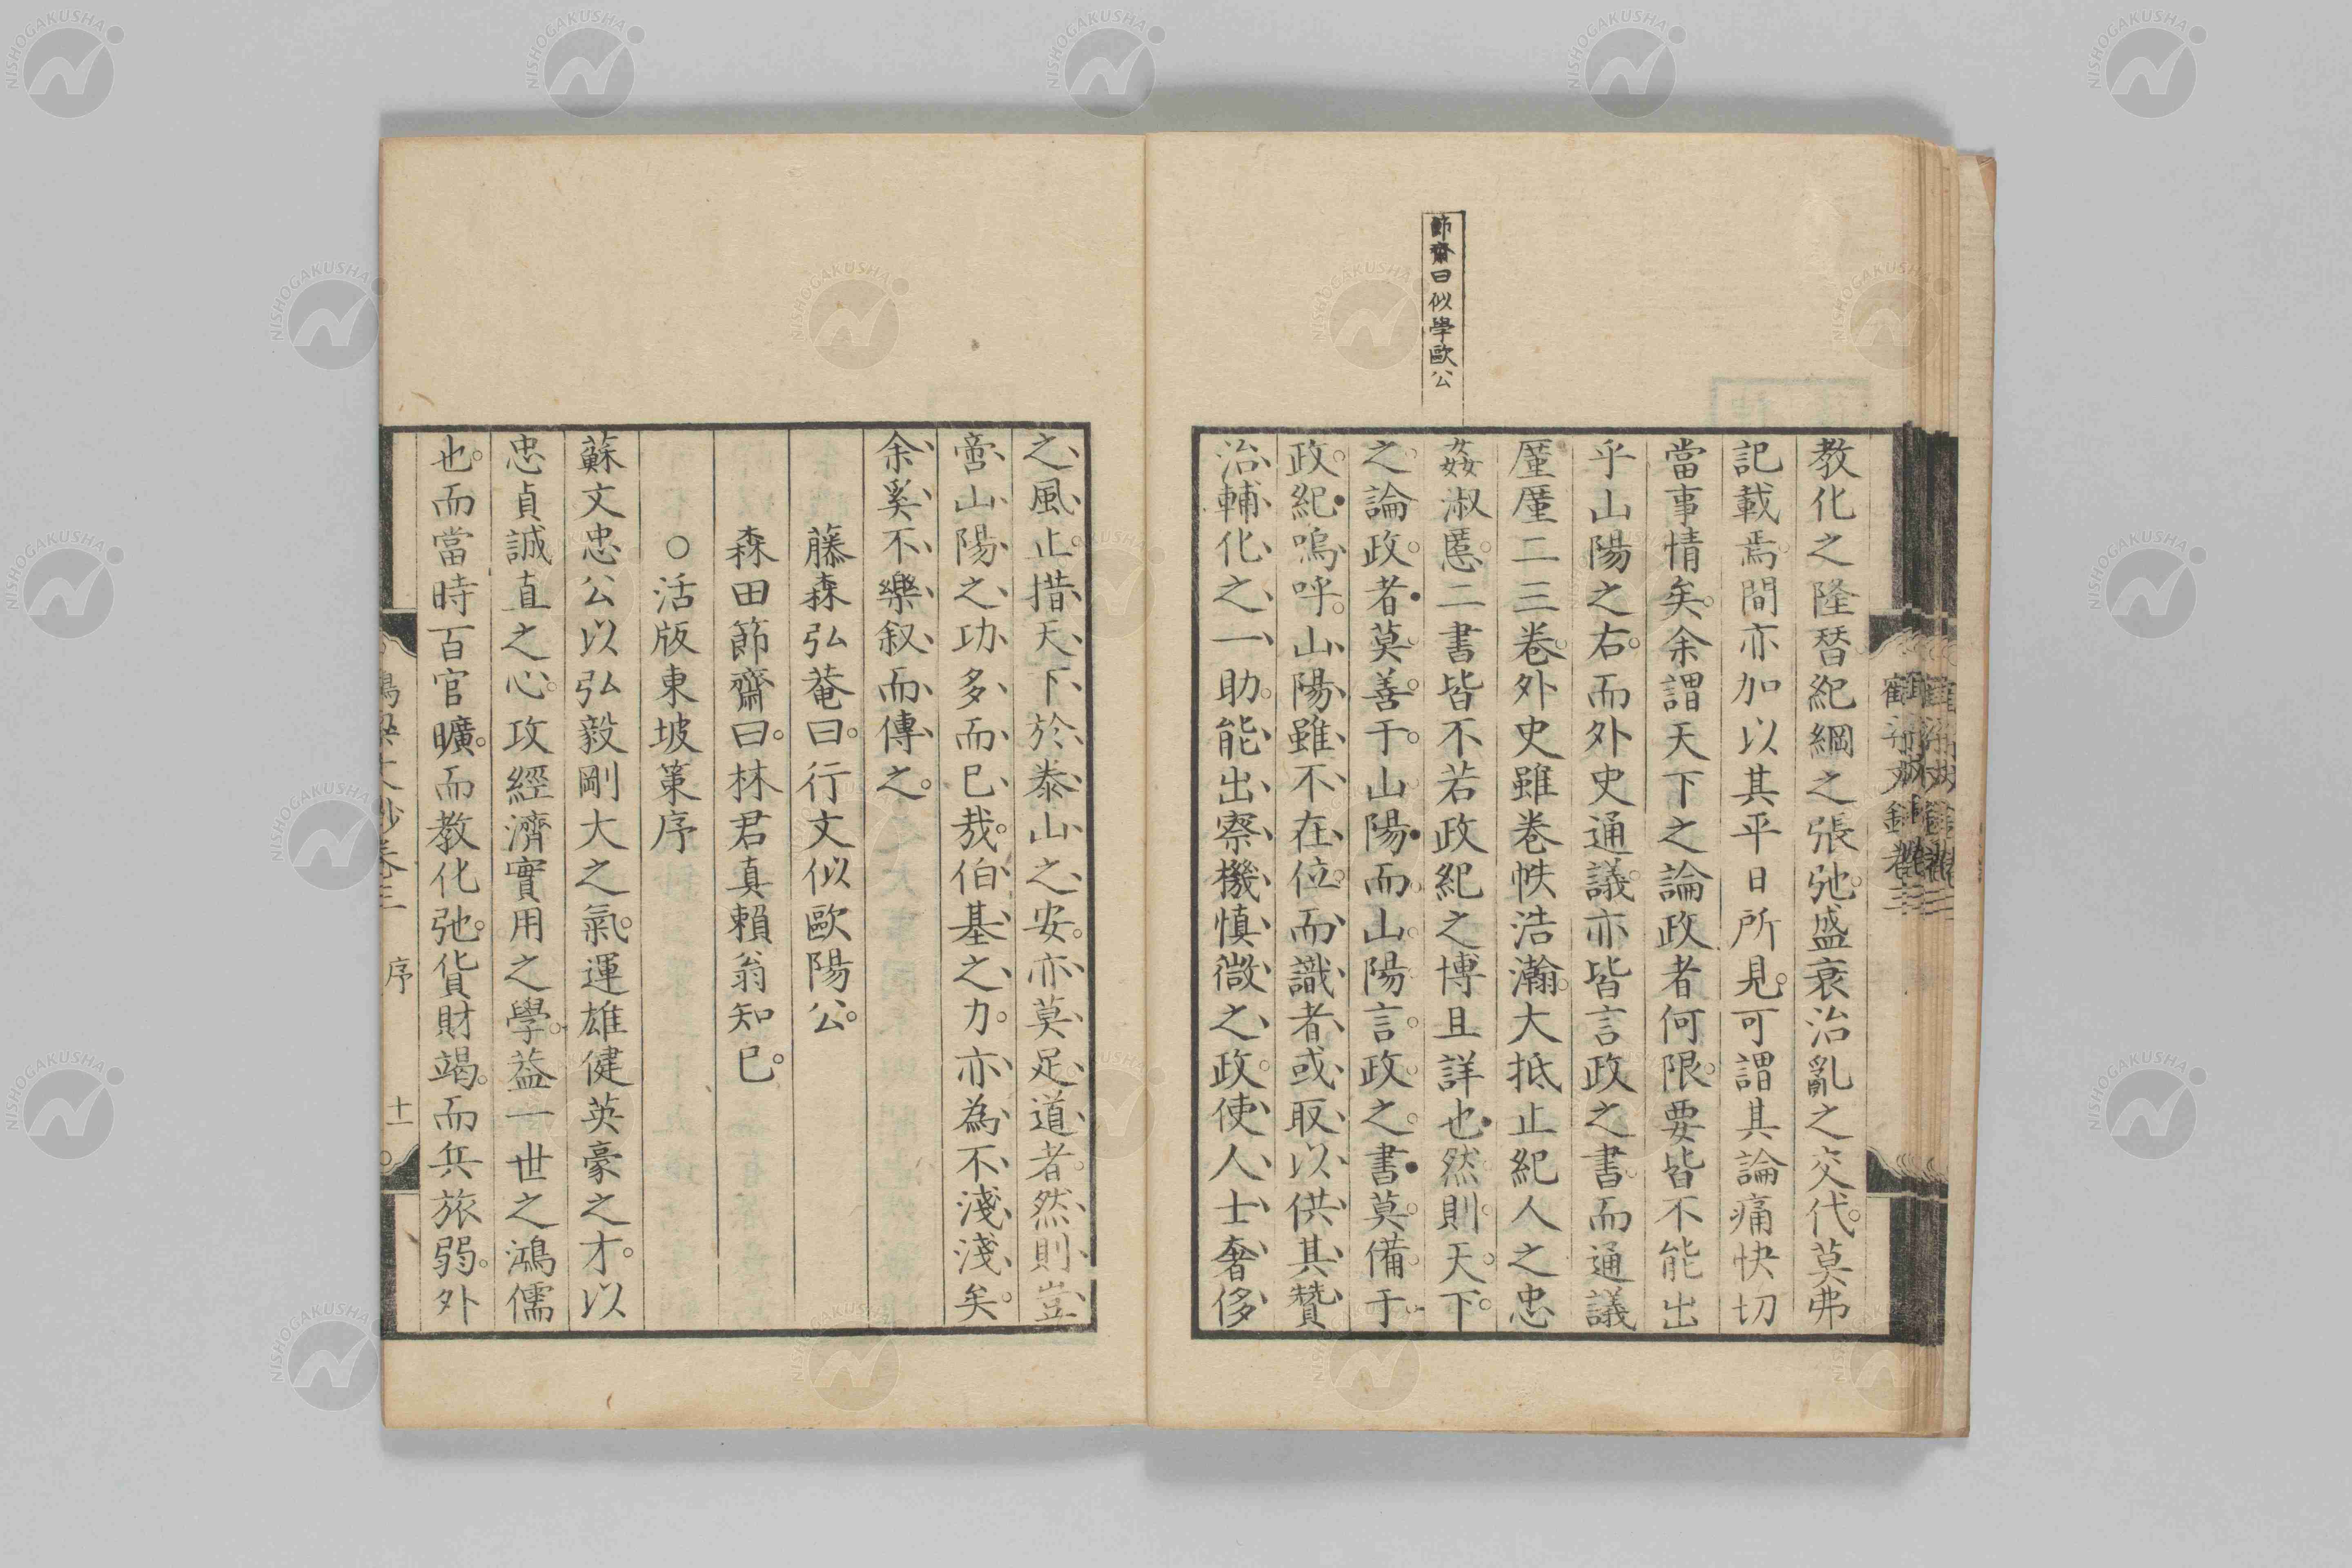 節齋曰似學歐公
教化之隆替紀綱之張弛。盛衰治亂之交代。莫弗
記載焉。間亦加以其平日所見。可謂其論痛快切
當事情矣。余謂天下之論政者何限。要皆不能出
乎山陽之右。而外史通議。亦皆言政之書。而通議
厪厪二三卷。外史雖卷帙浩瀚。大抵止紀人之忠
姦淑慝。二書皆不若政紀之博且詳也。然則。天下。
之論政者。莫善于山陽。而山陽言政之書。莫備于
政紀。嗚呼。山陽雖不在位。而識者或取以供其贊
治輔化之一助。能出察機慎微之政。使人士奢侈
之風止。措天下於泰山之安。亦莫足道者。然則豈
啻山陽之功多而已哉。伯基之力。亦為不淺淺矣。
余奚不樂叙而傳之。
藤森弘菴曰。行文似歐陽公。
森田節齋曰。林君真賴翁知已。
○活版東坡策序
蘇文忠公以弘毅剛大之氣。運雄健英豪之才。以
忠貞誠直之心。攻經濟實用之學。益一世之鴻儒
也。而當時百官曠。而教化弛。貨財竭。而兵旅弱。外
序
十一